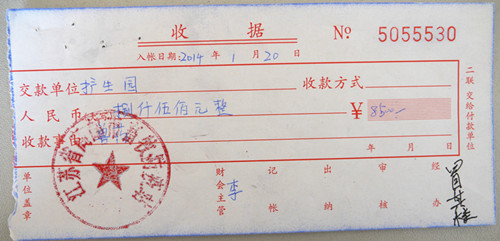 收 据 № 5055530
入帐日期: 2014 年 1 月 20 日
交款单位 护生园 收款方式
人民币(大写) 捌仟伍佰元整 ¥ 8500
收款事由
年 月 日
单位盖章 财会主管 李 记帐 出纳 审核 经办
二联交给付款单位
江苏省